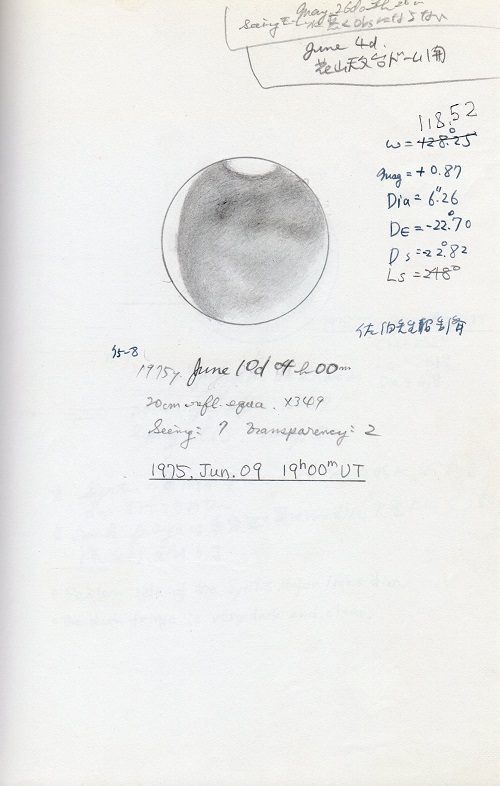 May 26d
Seeing
June 4d.
花山天文台ドーム1用
118.52
ω=128.°25
mag=+0.87
Dia=6".26
DE=-22.°70
Ds=-22.°82
Ls=248°
佐伯先生報告済
75-8
1975y. June 10d 04h00m
20cm refl. equa. ×349
Seeing: 7 Transparency: 2
1975. Jun. 09 19h00m UT